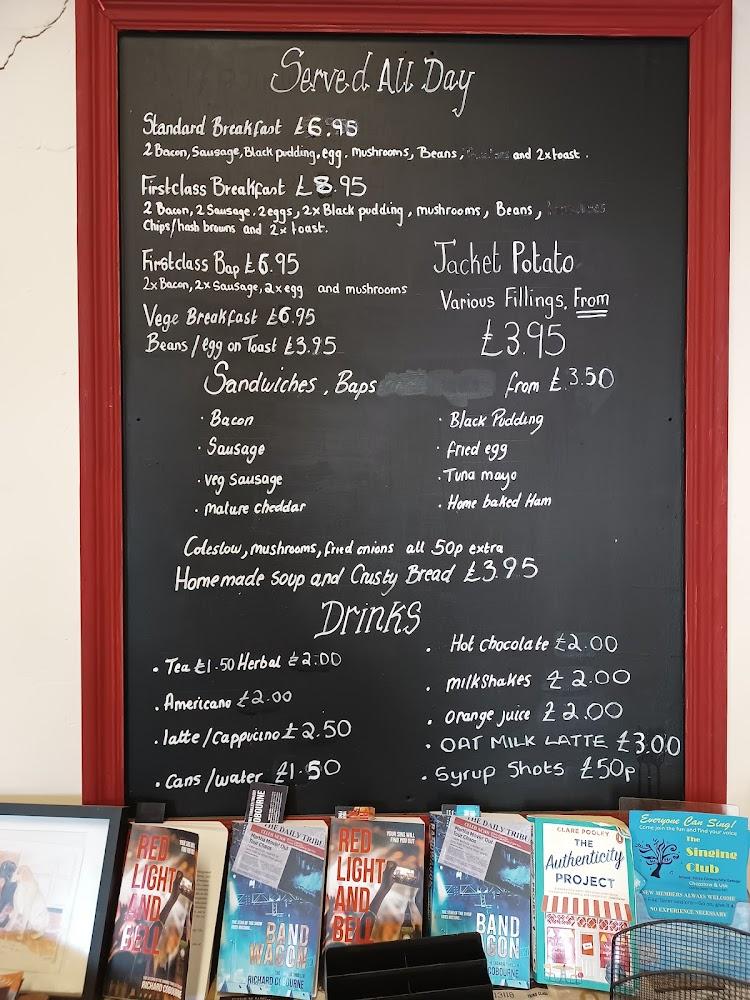 Served All Day
Standard Breakfast £6.95
2 Bacon, Sausage, Black pudding, egg, mushrooms, Beans, and 2x toast.
Firstclass Breakfast £8.95
2 Bacon, 2 Sausage, 2 eggs, 2x Black pudding, mushrooms, Beans,
Chips/hash browns and 2x toast.
Firstclass Bap £6.95
2x Bacon, 2x Sausage, 2x egg and mushrooms
Vege Breakfast £6.95
Beans/egg on Toast £3.95
Jacket Potato
Various Fillings, From
£3.95
Sandwiches, Baps from £3.50
· Bacon
· Sausage
· veg Sausage
· mature cheddar
· Black Pudding
· fried egg
· Tuna mayo
· Home baked Ham
Coleslow, mushrooms, fried onions all 50p extra
Homemade soup and Crusty Bread £3.95
Drinks
· Tea £1.50 Herbal £2.00
· Americano £2.00
· latte/cappucino £2.50
· cans/water £1.50
· Hot chocolate £2.00
· milkshakes £2.00
· orange juice £2.00
· OAT MILK LATTE £3.00
· Syrup Shots £50p
RED
LIGHT
AND
BELL
THE DAILY TRIBE
BAND
WAGON
RICHARD COBOURNE
YOUR SING WILL
FIND YOU OUT
RED
LIGHT
AND
BELL
THE DAILY TRIBE
BAND
WAGON
COBOURNE
CLARE POOLEY
THE
Authenticity
PROJECT
Everyone Can Sing!
Come join the fun and find your voice
The
Singing
Club
Chepstow & Usk
NEW MEMBERS ALWAYS WELCOME
NO EXPERIENCE NECESSARY